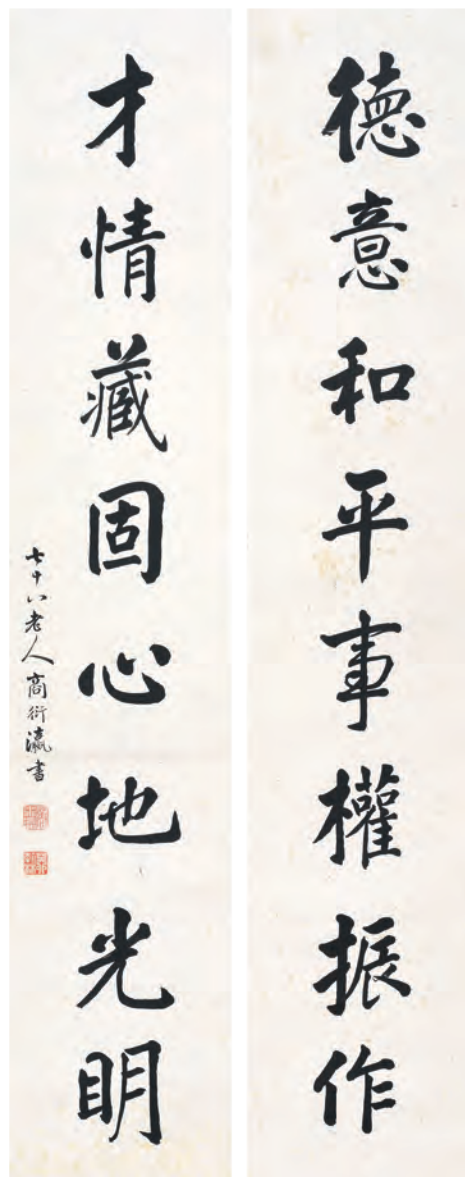 德意和平事權振作
才情藏固心地光明
七十八老人商衍瀛書